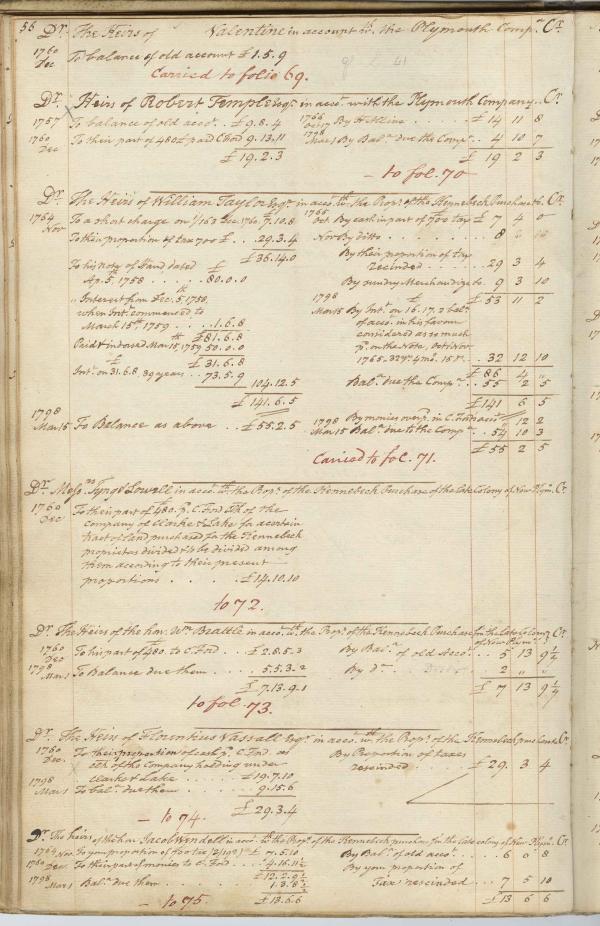 56 Dr. The Heirs of Valentine in account wth. the Plymouth Compy. Cr.
1760 Dec To balance of old account £1.5.9
Carried to folio 69.
Dr. Heirs of Robert Temple Esqr. in accot. with the Plymouth Company. Cr.
1757 To balance of old accot. . £9.8.4
By H Alline . . . . . £14 11 8
1760 Dec To their part of 480£ paid C Ford 9.13.11
1798 Mar 1 By Bala. due the Compy. . . 4 10 7
£19.2.3
£19 2 3
— to fol. 70
Dr. The Heirs of William Taylor Esqr. in accot. wth. the Propr. of the Kennebeck Purchase &c. Cr.
1764 Nov To a short charge on 1/163 Dec. 1760. 7.10.8
1766 Oct. By cash in part of 700£ tax £7 4 0
To their proportion of tax 700£ . . . 29.3.4
Nov By ditto . . . . . . 8
£36.14.0
By their proportion of tax rescinded . . . 29 3 4
To his note of hand dated
Ap. 5th. 1758 . . . . . 80.0.0
By sundry Merchandize &c. 9 3 10
£53 11 2
Interest from Dec. 5th 1758,
when Intt. commenced to
March 15th. 1759 . . . . 1.6.8
1798 Mar 15 By Intt. on 16.17.2 bala.
of acco. in his favour
considered as so much
pd. on the Note, Oct. Nov.
1765. 32 yr. 4 mo. 15 D. . . 32 12 10
£81.6.8
Paid & indorsed Mar. 15th, 1759 50.0.0
£31.6.8
£86 4 "
Intt. on 31.6.8 39 years . . 73.5.9
104.12.5
Bala. due the Compy. . . 55 2 5
£141.6.5
£141 6 5
1798 Mar 15 To Balance as above . . £55.2.5
1798 By monies over pd. in C. Ford's acct. " 12 2
Mar 15 Bala. due to the Compy. . . 54 10 3
£55 2 5
Carried to fol. 71.
Dr. Messrs. Tyng & Lowell in accot. wth. the Propr. of the Kennebeck Purchase of the late Colony of New Plymo. Cr.
1760 Dec To their part of £480. pd. C. Ford Tr. of the
company of Clarke & Lake for a certain
tract of land purchased for the Kennebeck
proprietors divided & to be divided among
them according to their present
proportions . . . . . £14.10.10
to 72.
Dr. The Heirs of the hon. Wm. Brattle in accot. wth. the Propr. of the Kennebeck Purchase from the late Colony of New Plymo. Cr.
1760 Dec To his part of £480. to C. Ford . . £2.8.5.3
By Bala. of old Acco. . . 5 13 9½
1798 Mar 1 To Balance due them . . . . 5.5.3.2
By do. . . . 2 " "
£7.13.9.1
£7 13 9¼
to fol. 73.
Dr. The Heirs of Florentius Vassall Esqr. in accot. wth. the Propr. of the Kennebeck purchase &c. Cr.
1760 Dec. To their proportion of cash pd. C. Ford
of the Company holding under
Clarke & Lake . . . . £19.7.10
By Proportion of taxes
rescinded . . . . £29. 3 4
1798 Mar 1 To bala. due them . . . . 9.15.6
£29.3.4
— to 74.
Dr. The heirs of the hon. Jacob Wendell in accot. wth. the Propr. of the Kennebeck purchase for the late colony of New Plymo. Cr.
1764 Nov. To your proportion of 700£ tax £7.5.10
By Bala. of old acco. . . . . 6 0 8
1760 Dec To their part of monies to C. Ford . . . 4.16.11½
By your proportion of
Tax rescinded . . . 7 5 10
£12.2.9½
1798 Mar 1 Bala. due them . . . . . . 1.3.8½
£13.6.6
£13 6 6
— to 75.